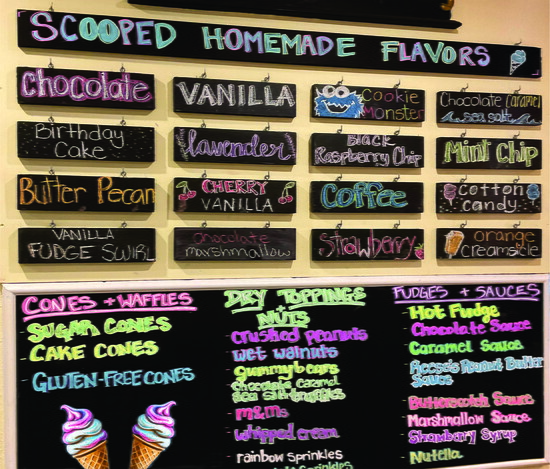 SCOOPED HOMEMADE FLAVORS
Chocolate
VANILLA
Cookie
Monster
Chocolate Caramel
sea salt
Birthday
Cake
lavender
Black
Raspberry Chip
Mint Chip
Butter Pecan
CHERRY
VANILLA
Coffee
cotton
candy
VANILLA
FUDGE SWIRL
chocolate
marshmallow
strawberry
orange
Creamsicle
CONES + WAFFLES
SUGAR CONES
CAKE CONES
GLUTEN-FREE CONES
DRY TOPPINGS
+
NUTS
crushed peanuts
wet walnuts
gummy bears
chocolate caramel
sea salt truffles
m&ms
whipped cream
rainbow sprinkles
sprinkles
FUDGES + SAUCES
- Hot Fudge
- Chocolate Sauce
- Caramel Sauce
- Reese's Peanut Butter
Sauce
- Butterscotch Sauce
- Marshmallow Sauce
- Strawberry Syrup
- Nutella